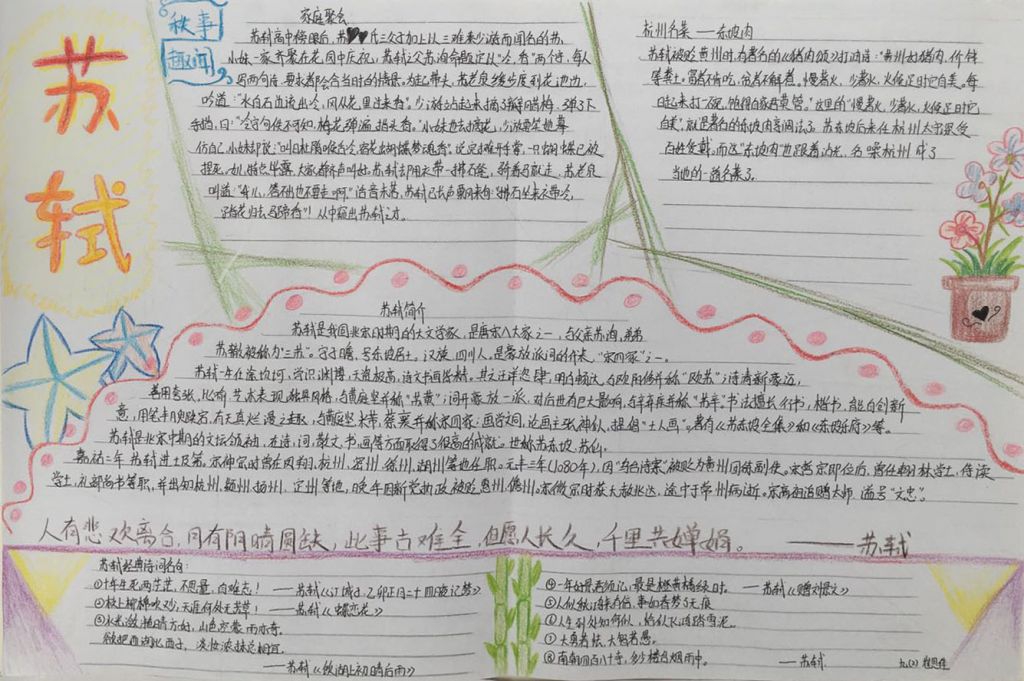 苏轼
轶事
趣闻
家庭聚会
苏轼高中榜眼后，苏
小妹一家齐聚在花园中庆祝。苏轼父苏洵命题定以“冷、香”两个诗，每人
写两句诗，要求都会合当时的情景。为起带头，苏老泉缓步度到花池边，
吟道：“水自石边流出冷，风从花里过来香。”
手指，曰：“冷字句佳不可知，梅花弹遍指头香。”小妹也去摘花，少游
仿自己，小妹却说：“叫日杜鹃喉舌冷，宿花蝴蝶梦魂香。”说完摊开手掌，一只蝴蝶已被
捏死，
叫道：
踏花归去马蹄香”！从中驱出苏轼之才。
杭州名菜——东坡肉
苏轼被贬黄州时，有著名的《猪肉颂》打油诗：“黄州好猪肉，价钱
等粪土。富者不肯吃，贫者不解煮。慢著火，少著水，火候足时它自美。每
日起来打一碗，饱得自家君莫管。”这里的“慢著火，少著水，火候足时它
自美”，就是著名的东坡肉烹调法了。苏东坡后来在杭州太守深受
百姓爱戴，而这“东坡肉”也跟着沾光，名噪杭州，成了
当地的一道名菜了。
苏轼简介
苏轼是我国北宋时期的大文学家，是唐宋八大家之一，与父亲苏洵，弟弟
苏辙被称为“三苏”。字子瞻，号东坡居士。汉族，四川人，是豪放派词的代表，“宋四家”之一。
苏轼一生仕途坎坷，学识渊博，天资极高，诗文书画皆精。其文汪洋恣肆，明白畅达，与欧阳修并称“欧苏”；诗清新豪迈，
善用夸张、比喻，艺术表现独具风格，与黄庭坚并称“苏黄”；词开豪放一派，对后世有巨大影响，与辛弃疾并称“苏辛”。书法擅长行书，楷书，能自创新
意，用笔丰腴跌宕，有天真烂漫之趣，与黄庭坚、米芾、蔡襄并称宋四家；画学文同，论画主张神似，提倡“士人画”。著有《苏东坡全集》和《东坡乐府》等。
苏轼是北宋中期的文坛领袖，在诗、词、散文、书、画等方面取得了很高的成就。世称苏东坡、苏仙。
嘉祐二年，苏轼进士及第。宋神宗时曾在凤翔、杭州、密州、徐州、湖州等地任职。元丰三年（1080年），因“乌台诗案”被贬为黄州团练副使。宋哲宗即位后，曾任翰林学士，侍读
学士，礼部尚书等职，并出知杭州、颍州、扬州、定州等地，晚年因新党执政被贬惠州、儋州。宋徽宗时获大赦北还，途中于常州病逝。宋高宗追赠太师，谥号“文忠”。
人有悲欢离合，月有阴晴圆缺，此事古难全，但愿人长久，千里共婵娟。——苏轼
苏轼经典诗词名句：
①十年生死两茫茫，不思量，自难忘！——苏轼《江城子·乙卯正月二十四日夜记梦》
②枝上柳绵吹又少，天涯何处无芳草！——苏轼《蝶恋花》
③水光潋滟晴方好，山色空蒙雨亦奇。
欲把西湖比西子，淡妆浓抹总相宜。
——苏轼《饮湖上初晴后雨》
④一年好景君须记，最是橙黄橘绿时。——苏轼《赠刘景文》
⑤人似秋鸿来有信，事如春梦了无痕
⑥人生到处知何似，恰似飞鸿踏雪泥。
⑦大勇若怯，大智若愚。
⑧南朝四百八十寺，多少楼台烟雨中。——苏轼